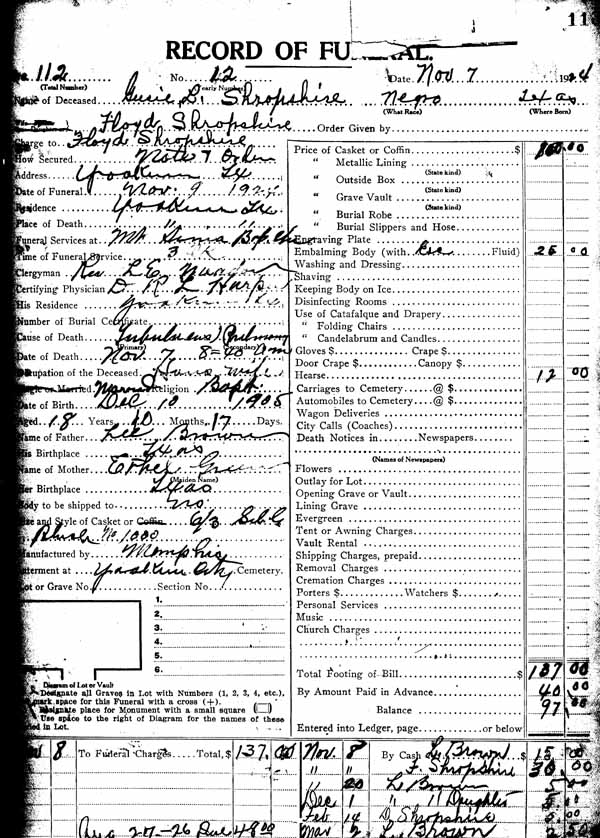 11
RECORD OF FUNERAL.
No. 112 No. 12 Date Nov 7 1924
(Total Number) (Yearly Number)
Name of Deceased Gusie L. Shropshire Negro Texas
(What Race) (Where Born)
Floyd Shropshire Order Given by
Charge to Floyd Shropshire
How Secured Note & Order
Address Yoakum Tex
Date of Funeral Nov. 9 192
Residence Yoakum Tex
Place of Death " "
Funeral Services at Mt. Bap. Ch
Time of Funeral Service 3
Clergyman Rev. L.E.
Certifying Physician D. R. L. Harp
His Residence Yoakum Tex
Number of Burial Certificate
Cause of Death Tuberculosis Pulmonary
(Primary) (Secondary)
Date of Death Nov 7 8=40 am
Occupation of the Deceased House wife
Single or Married Married Religion Bapt.
Date of Birth Dec 10 1905
Aged 18 Years 10 Months 17 Days.
Name of Father Lee Brown
His Birthplace Texas
Name of Mother Ethel Green
(Maiden Name)
Her Birthplace Texas
Body to be shipped to no.
Size and Style of Casket or Coffin 6/3
Plush No 1000
Manufactured by Memphis
Interment at Yoakum City Cemetery.
Lot or Grave No. Section No.
1.
2.
3.
4.
5.
6.
Diagram of Lot or Vault
Designate all Graves in Lot with Numbers (1, 2, 3, 4, etc.),
mark space for this Funeral with a cross (+).
Designate place for Monument with a small square
Use space to the right of Diagram for the names of these
ied in Lot.
Price of Casket or Coffin $ 100.00
" Metallic Lining
(State kind)
" Outside Box
(State kind)
" Grave Vault
(State kind)
" Burial Robe
" Burial Slippers and Hose
Engraving Plate
Embalming Body (with Fluid) 25 00
Washing and Dressing
Shaving
Keeping Body on Ice
Disinfecting Rooms
Use of Catafalque and Drapery
" Folding Chairs
" Candelabrum and Candles
Gloves $ Crape $
Door Crape $ Canopy $
Hearse 12 00
Carriages to Cemetery @ $
Automobiles to Cemetery @ $
Wagon Deliveries
City Calls (Coaches)
Death Notices in Newspapers
(Names of Newspapers)
Flowers
Outlay for Lot
Opening Grave or Vault
Lining Grave
Evergreen
Tent or Awning Charges
Vault Rental
Shipping Charges, prepaid
Removal Charges
Cremation Charges
Porters $ Watchers $
Personal Services
Music
Church Charges
Total Footing of Bill $ 137 00
By Amount Paid in Advance 40 00
Balance 97 00
Entered into Ledger, page or below
8 To Funeral Charges Total, $ 137.00 Nov. 8 By Cash L. Brown 15.00
" " F. Shropshire 30.00
" 20 L Brown
Dec 1 " " Daughter
Feb 14 D, Shropshire
Aug 27-26 Due 48 00 Mar 2 L. Brown